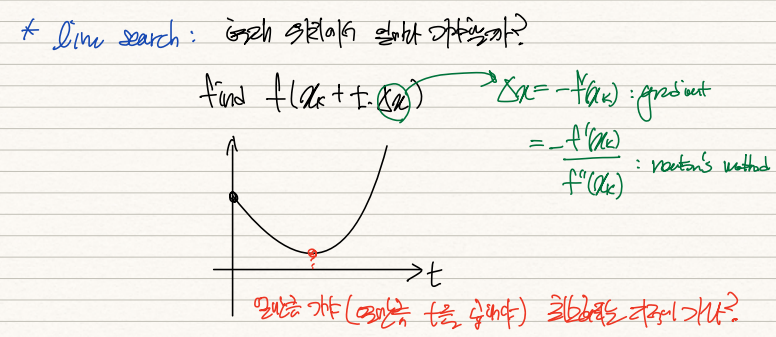 * line search : 현재 위치에서 얼마나 가야할까?
find f(x_k + t·Δx)
Δx = -f'(x_k) : gradient
= -f'(x_k) / f''(x_k) : newton's method
t
얼만큼 가야 (얼만큼 t를 줘야) 최솟값으로 가나?